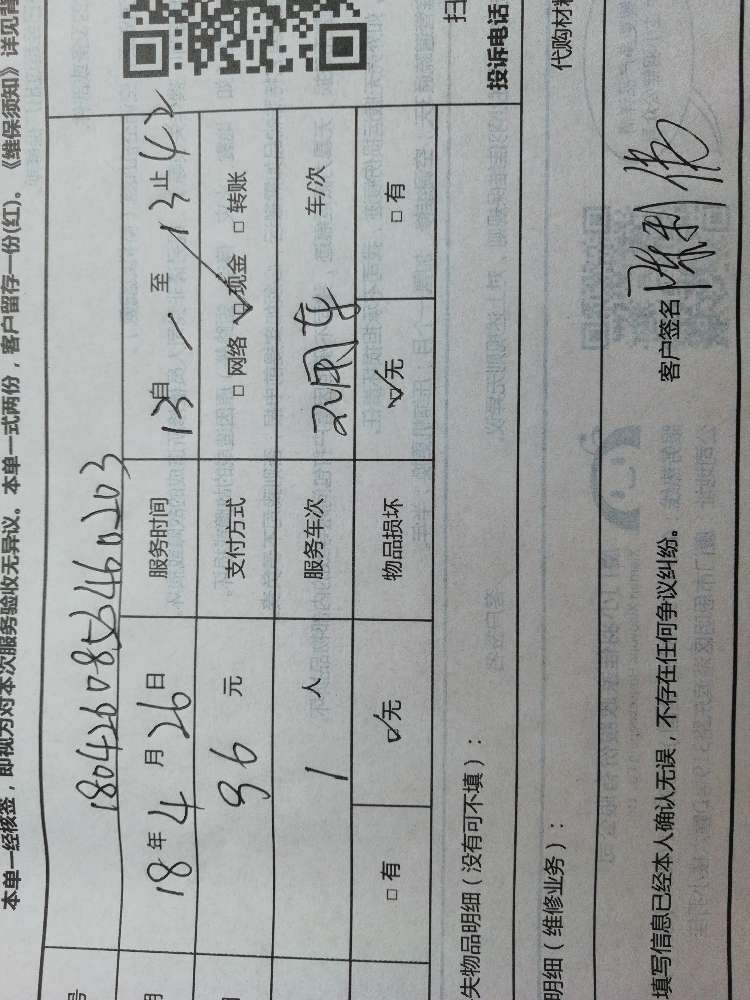 本单一经核签，即视为对本次服务验收无异议。本单一式两份，客户留存一份(红)。《维保须知》详见背
号 1804260853460203
18年4月26日 服务时间 13自 至13止42
96元 支付方式 □ 网络 ☑ 现金 □ 转账
1 人 服务车次 车/次
□ 有 ☑ 无 物品损坏 ☑ 无 □ 有
失物品明细（没有可不填）：
投诉电话
扫
明细（维修业务）：
代购材料
填写信息已经本人确认无误，不存在任何争议纠纷。
客户签名